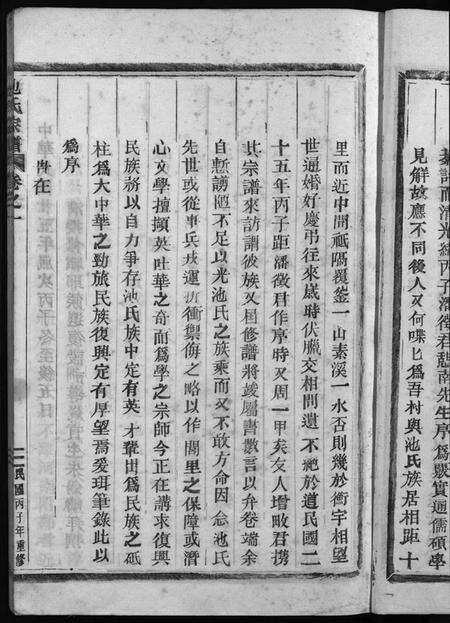 見解故應不同後人又何喋匕爲吾村與池氏族居相距十
里而近中間祗隔覆釜一山素溪一水否則幾於衡宇相望
世通婚好慶弔往來歲時伏臘交相問遺不絶於道民國二
十五年丙子距潘徵君作序時又周一甲矣友人增畋君携
其宗譜來訪謂彼族又届修譜將竣屬書數言以弁卷端余
自慙譾陋不足以光池氏之族乘而又不敢方命因念池氏
先世或從事兵戎運折衝禦侮之略以作閭里之保障或潛
心文學擅擷英吐華之奇而爲學之宗師今正在講求復興
民族務以自力爭存池氏族中定有英才輩出爲民族之砥
柱爲大中華之勁旅民族復興定有厚望焉爰珥筆錄此以
爲序
池氏宗譜
卷之一
民國丙子年重修